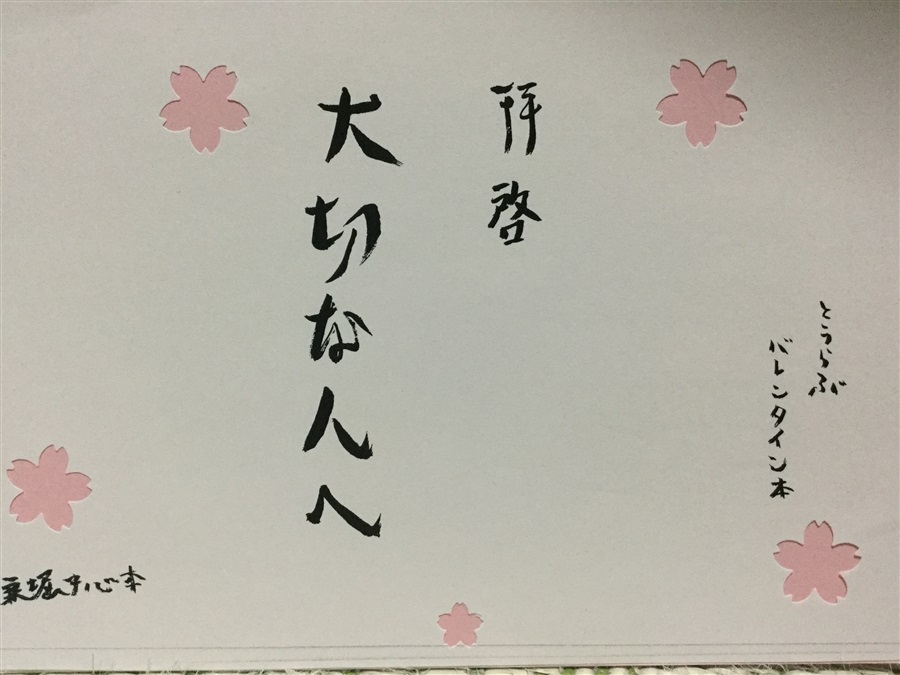 とうらぶ
バレンタイン本
拝啓
大切な人へ
堀中心本